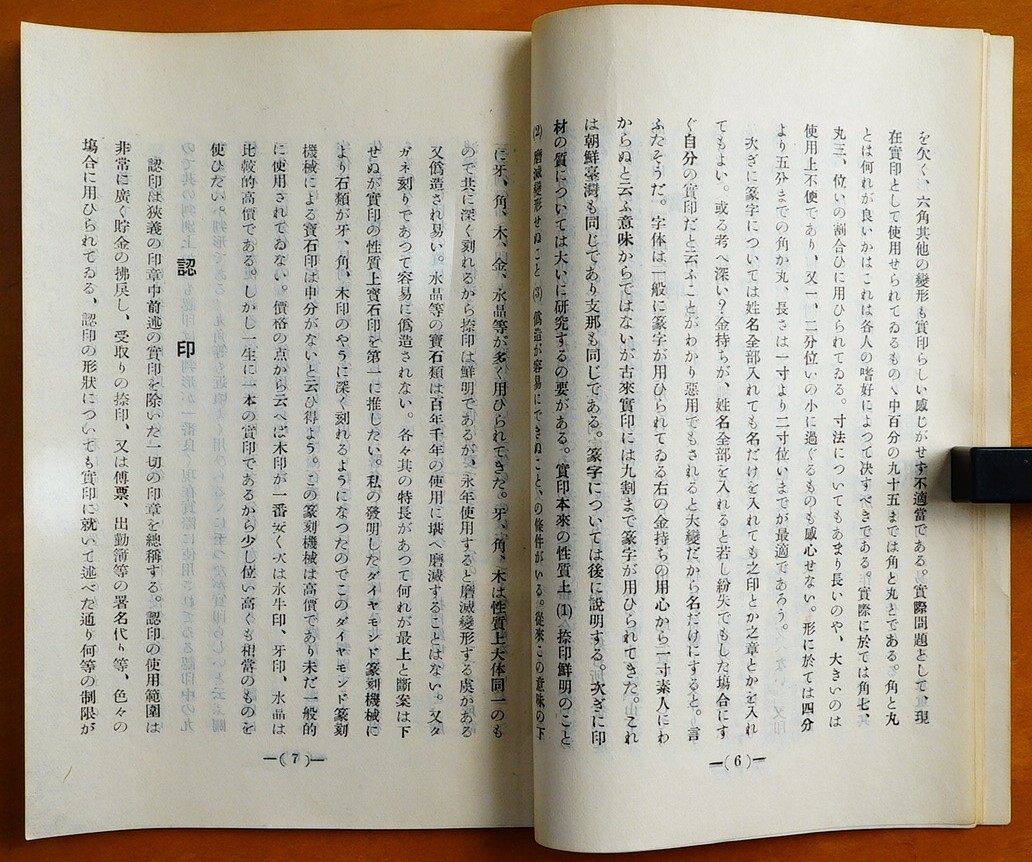 を欠く、六角其他の變形も實印らしい感じがせず不適當である。實際問題として、重現
在實印として使用せられてゐるものゝ中百分の九十五までは角と丸とである。角と丸
とは何れが良いかはこれは各人の嗜好によつて決すべきである。實際に於ては角七、
丸三、位いの割合ひに用ひられてゐる。寸法についてもあまり長いのや、大きいのは
使用上不便であり、又一、二分位いの小に過ぐるものも感心せない。形に於ては四分
より五分までの角か丸、長さは一寸より二寸位いまでが最適であろう。
次ぎに篆字については姓名全部入れても名だけを入れても之印とか之章とかを入れ
てもよい。或る考へ深い?金持ちが、姓名全部を入れると若し紛失でもした場合にす
ぐ自分の實印だと云ふことがわかり惡用でもされると大變だから名だけにすると。言
ふたそうだ。字体は一般に篆字が用ひられてゐる右の金持ちの用心から一寸素人にわ
からぬと云ふ意味からではないが古來實印には九割まで篆字が用ひられてきた。これ
は朝鮮臺灣も同じであり支那も同じである。篆字については後に説明する。次ぎに印
材の質については大いに研究するの要がある。實印本來の性質上(1)捺印鮮明のこと
(2) 磨滅變形せぬこと (3) 僞造が容易にできぬこと、の條件がいる。從來この意味の下
—(6)—
に牙、角、木、金、水晶等が多く用ひられてきた。牙、角、木は性質上大体同一のも
ので共に深く刻れるから捺印は鮮明であるが、永年使用すると磨滅變形する虞がある
又僞造され易い。水晶等の寶石類は百年千年の使用に堪へ磨滅することはない。又タ
ガネ刻りであつて容易に僞造されない。各々其の特長があつて何れが最上と斷案は下
せぬが實印の性質上寶石印を第一に推したい。私の發明したダイヤモンド篆刻機械に
より石類が牙、角、木印のやうに深く刻れるようになつたのでこのダイヤモンド篆刻
機械による寶石印は申分がないと云ひ得よう。この篆刻機械は高價であり未だ一般的
に使用されてゐない。價格の点から云へば木印が一番安く次は水牛印、牙印、水晶は
比較的高價である。しかし一生に一本の實印であるから少し位い高くも相當のものを
使ひたい。
認印
認印は狹義の印章中前述の實印を除いた一切の印章を總稱する。認印の使用範圍は
非常に廣く貯金の拂戻し、受取りの捺印、又は傳票、出勤簿等の署名代り等、色々の
場合に用ひられてゐる、認印の形狀についても實印に就いて述べた通り何等の制限が
—(7)—